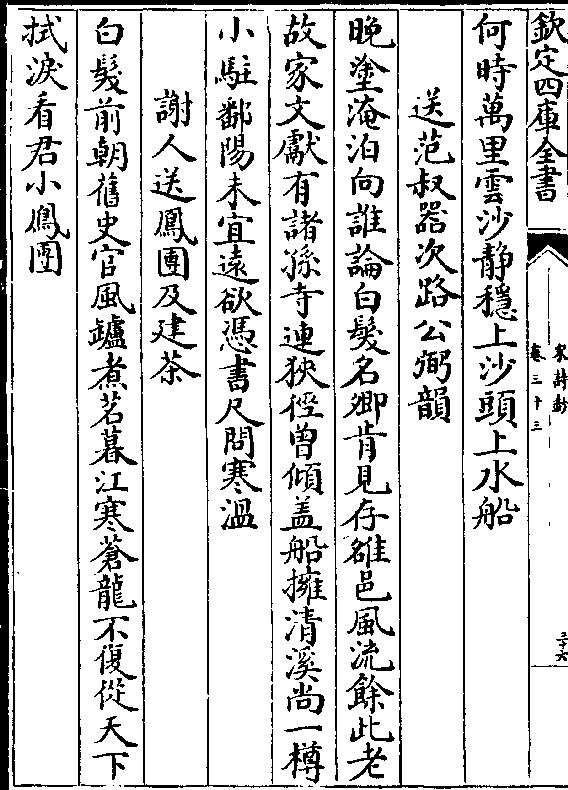 欽定四庫全書
宋詩鈔
卷三十三
三十六
何時萬里雲沙靜穩上沙頭上水船
送范叔器次路公弼韻
晚塗淹泊向誰論白髮名卿肯見存雒邑風流餘此老
故家文獻有諸孫寺連狹徑曾傾盖船擁清溪尚一樽
小駐鄱陽未宜遠欲憑書尺問寒溫
謝人送鳳團及建茶
白髮前朝舊史官風爐煮茗暮江寒蒼龍不復從天下
拭淚看君小鳳團